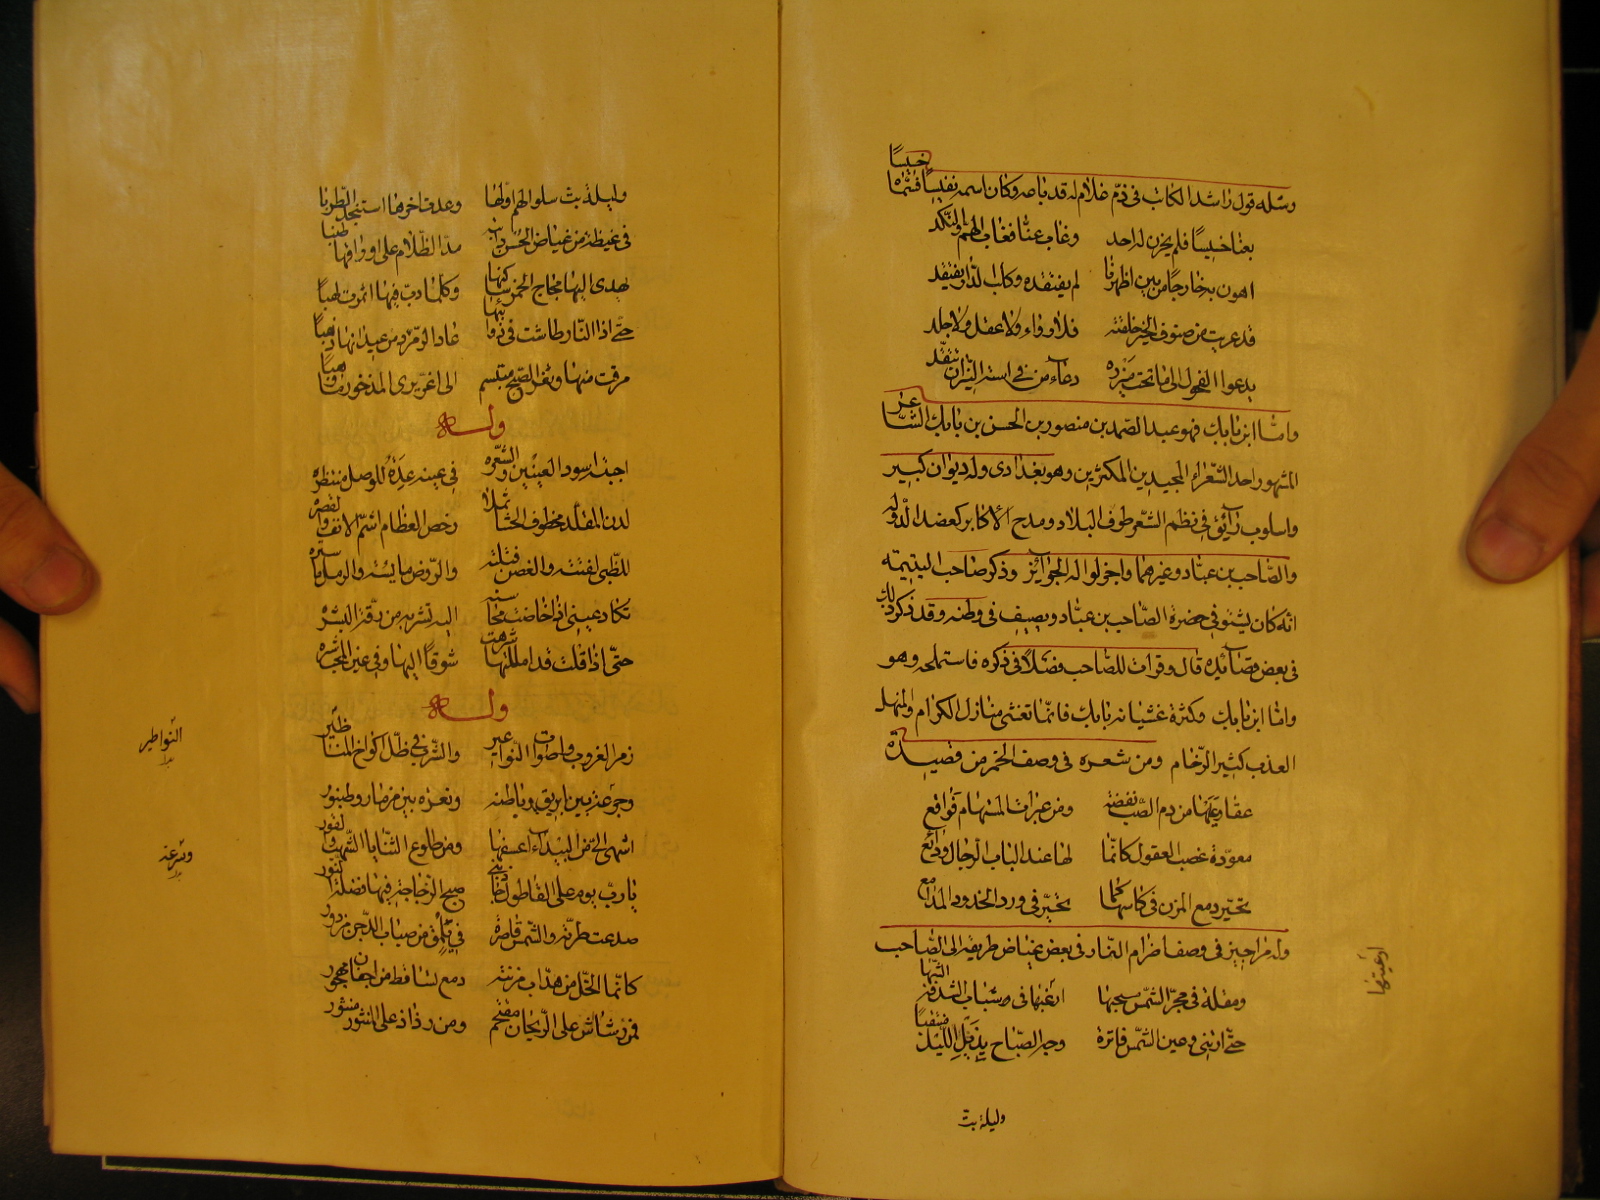 ومثله قول راشد الكاتب فى ذمّ غلام له قد باعه وكان اسمه نفيسًا فسمّاه خسيسًا
بعنا خسيسًا فلم يحزن له احد وغاب عنّا فغاب الهمّ والنّكد
اهون به خارجًا من بين اظهرنا لم نفتقده وكلب الدّار يفتقد
قد عريت من صنوف الخير خلقته فلا رواء ولا عقل ولا جلد
يدعوا الفحول الى ما تحت مئزره دعاء من فى استه النّيران تتّقد
وامّا ابن بابك فهو عبد الصّمد بن منصور بن الحسن بن بابك الشّاعر
المشهور احد الشّعراء المجيدين المكثرين وهو بغدادى وله ديوان كبير
واسلوب رآئق فى نظم الشّعر طوف البلاد ومدح الاكابر كعضد الدّوله
والصّاحب بن عبّاد وغيرهما واجزلوا له الجوآئز وذكر صاحب اليتيمة
انّه كان يشتو فى حضرة الصّاحب بن عبّاد ويصيف فى وطنه وقد ذكر ذلك
فى بعض قصآئده قال وقرات للصّاحب فصلًا فى ذكره فاستملحه وهو
وامّا ابن بابك وكثرة غشيانه بابك فانّما تغشى منازل الكرام والمنهل
العذب كثير الزّحام ومن شعره فى وصف الخمر من قصيدة
عقار عليها من دم الصّبّ نفضة ومن عبرات المستهام فواقع
معوّدة غصب العقول كانّما لها عند الباب الرّجال ودآئع
تحيّر دمع المزن فى كاسها كما تحيّر فى ورد الخدود المدامع
وله مرا جيز فى وصف اضرام النّار فى بعض غياض طريقه الى الصّاحب
ومقلة فى مجرّ الشّمس مسحبها ارعيتها فى شباب السّدفة الشّهبا
حتّى ارتنى وعين الشّمس فاترة وجه الصّباح بذيل اللّيل منتقبا
ارعيتها
وليلة بت
وليلة بتّ سلو الهمّ اولها وعدت اخرها استنجد الطّربا
فى غيضة من غياض الحسن دانية مدّ الظّلام على اوراقها طنبا
يهدى اليها مجاج الخمر ساكنها وكلما دبّ فيها اثمرت لهبا
حتّى اذا النّار طاشت فى ذوائبها عاد الزّمرّد من عيدانها ذهبا
مرقت منها وثغر الصّبح مبتسم الى اغرّ يرى المذخور ما وهبا
وله
احببته اسود العينين والشّعره فى عينه عدة للوصل منتظره
لدن المقلّد مخطوف الحشا ثملا رخص العظام اشمّ الانف والقصره
للظّبى لفتته والغصن فتلته والرّوض ما بثّه والرمل ما ستره
تكاد عينى اذا خاضت محاسنه اليه تشربه من رقّة البشره
حتّى اذا قلت قد املّلتها شرهت شوقًا اليها وفى عين المحبّ شره
وله
زمر الغروب واصوات النّواعير والشّرب فى ظلّ اكواخ المناظير
وجرعة بين ابريق وباطئة ونعره بين مزمار وطنبور
اشهى الىّ من البيدآء اعسفها ومن طلوع الثّنايا الشّهب والقور
يا ربّ يوم على القاطول جاذبنى صبح الزّجاجة فيها فضلة النّور
صدعت طرّته والشّمس قاصرة فى يلمق من ضباب الدّجن مزرور
كانّما انحلّ من هدّاب مزنته دمع تساقط من اجفان مهجور
فمن رشاش على الرّيحان مقتحم ومن رذاذ على المنثور منثور
النواطير
وترعة